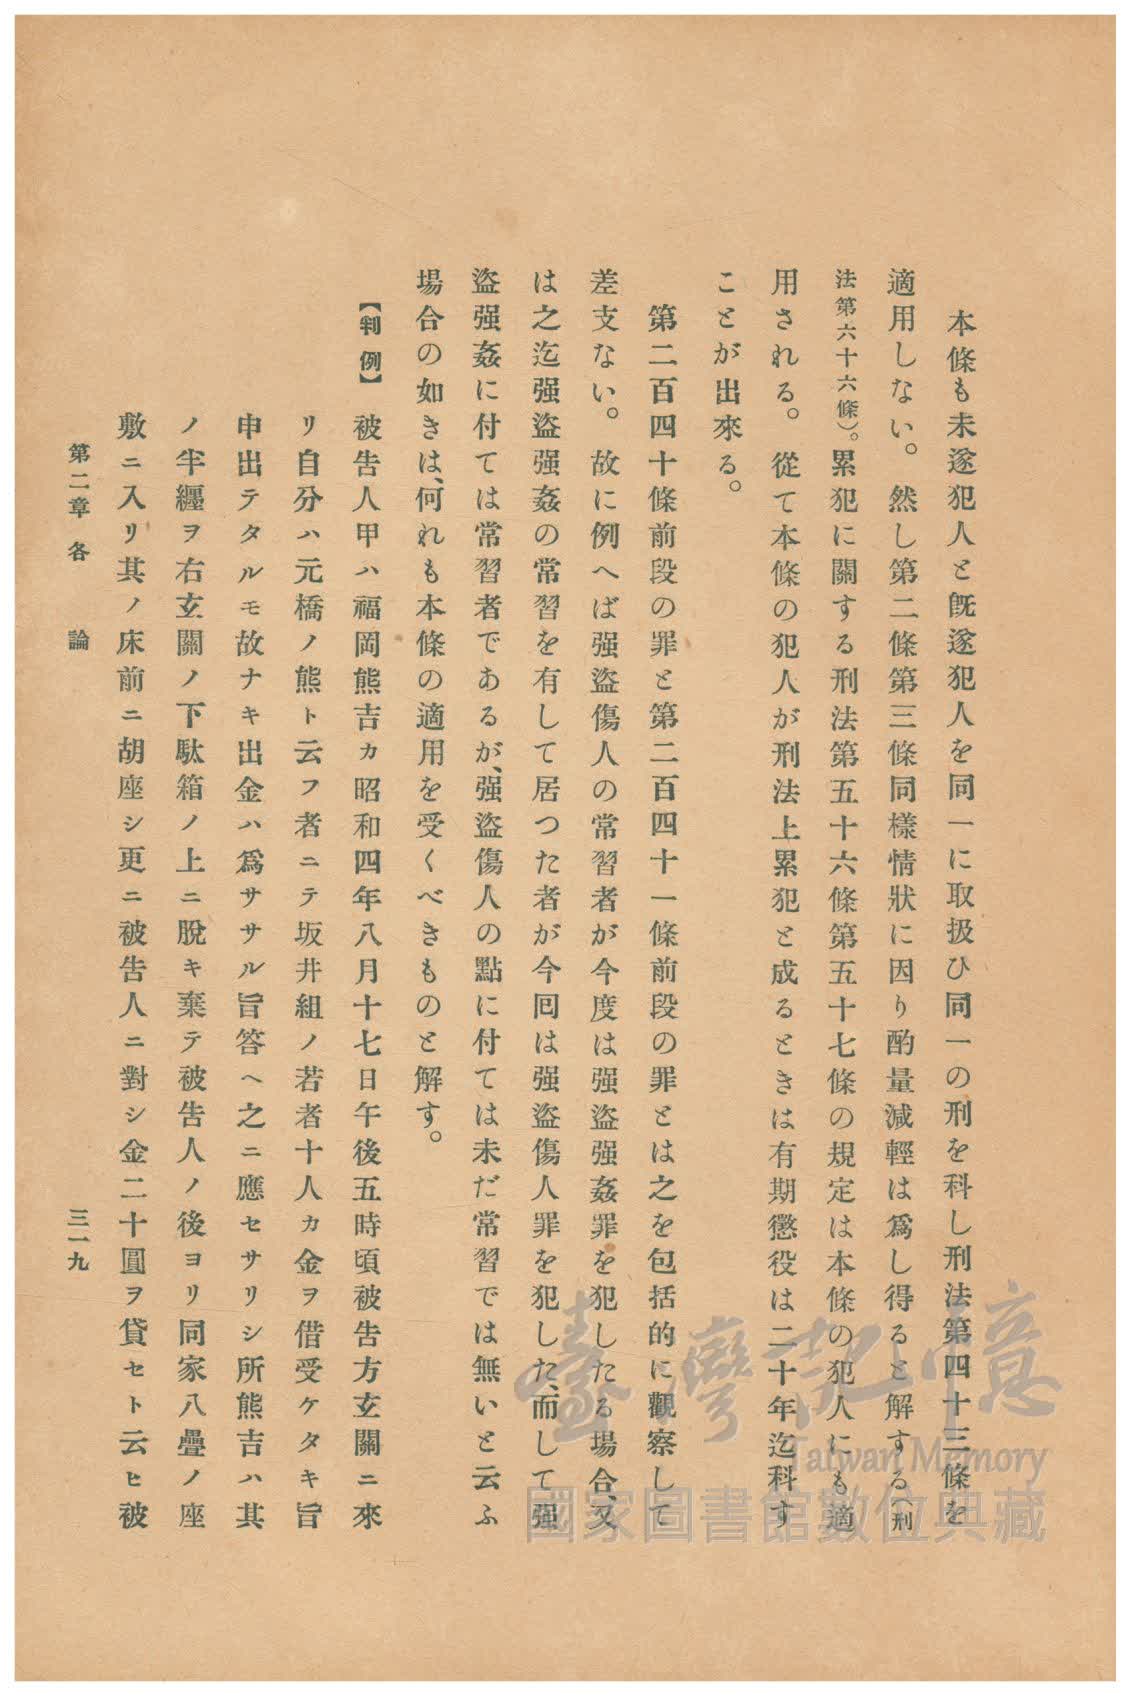 本條も未遂犯人と旣遂犯人を同一に取扱ひ同一の刑を科し刑法第四十三條を
適用しない。然し第二條第三條同樣情狀に因り酌量減輕は爲し得ると解する(刑
法第六十六條)。累犯に關する刑法第五十六條第五十七條の規定は本條の犯人にも適
用される。從て本條の犯人が刑法上累犯と成るときは有期懲役は二十年迄科す
ことが出來る。
第二百四十條前段の罪と第二百四十一條前段の罪とは之を包括的に觀察して
差支ない。故に例へば强盜傷人の常習者が今度は强盜强姦罪を犯したる場合、又
は之迄强盜强姦の常習を有して居つた者が今囘は强盜傷人罪を犯した、而して强
盜强姦に付ては常習者であるが、强盜傷人の點に付ては未だ常習では無いと云ふ
場合の如きは、何れも本條の適用を受くべきものと解す。
【判例】 被告人甲ハ福岡熊吉カ昭和四年八月十七日午後五時頃被告方玄關ニ來
リ自分ハ元橋ノ熊ト云フ者ニテ坂井組ノ若者十人カ金ヲ借受ケタキ旨
申出テタルモ故ナキ出金ハ爲ササル旨答ヘ之ニ應セサリシ所熊吉ハ其
ノ半纒ヲ右玄關ノ下駄箱ノ上ニ脫キ棄テ被告人ノ後ヨリ同家八疊ノ座
敷ニ入リ其ノ床前ニ胡座シ更ニ被告人ニ對シ金二十圓ヲ貸セト云ヒ被
第二章 各論 三一九
臺灣記憶
Taiwan Memory
國家圖書館數位典藏